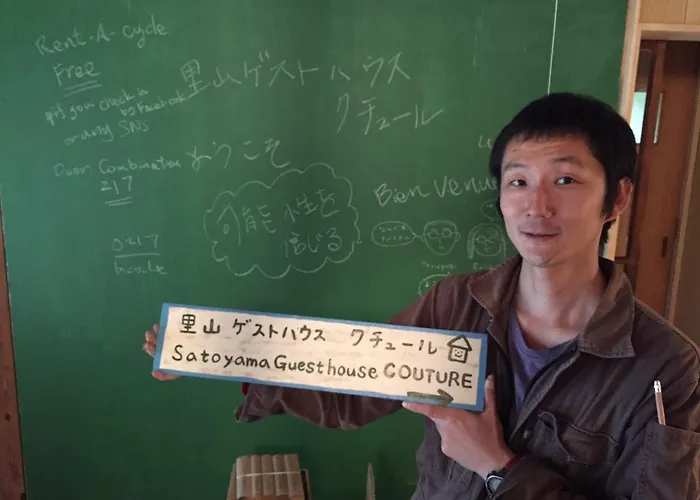 Rent-A-cycle
Free
*if you check in
by Facebook
or any SNS
Door Combination
217
0217
bicycle
里山ゲストハウス
クチュール
ようこそ
可能性を
信じる
Bien venue
里山 ゲストハウス クチュール
Satoyama Guesthouse COUTURE